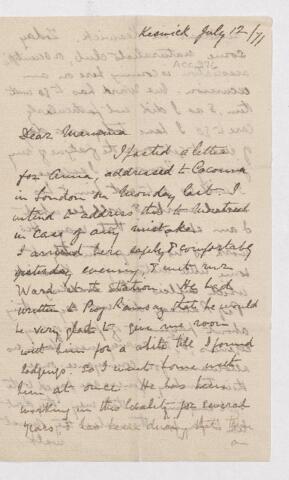 Keswick July 12/71
Dear Mamma
I posted a letter
for Anna, addressed to Cacouna
in London on Monday last. I
intend to address this to Montreal
in case of any mistake.
I arrived here safely & comfortably
yesterday evening, & met Mr
Ward at the station. He had
written to Prof Ramsay that he would
be very glad to give me room
with him for a while till I found
lodgings. So I went home with
him at once. He has been
working in this locality for several
years & has been during that